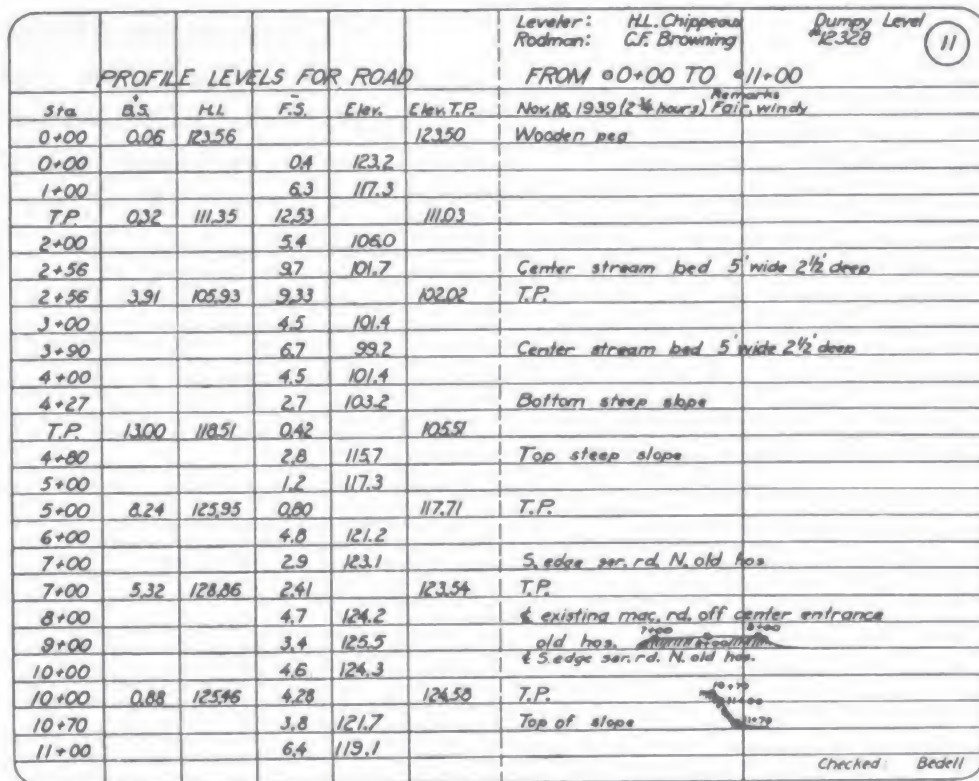 Leveler: H.L. Chippeaux Dumpy Level
Rodman: C.F. Browning #12328 11
PROFILE LEVELS FOR ROAD FROM 0+00 TO 11+00
+ - Remarks
Sta. B.S. H.I. F.S. Elev. Elev. T.P. Nov. 16, 1939 (2 3/4 hours) Fair, windy
0+00 0.06 123.56 123.50 Wooden peg
0+00 0.4 123.2
1+00 6.3 117.3
T.P. 0.32 111.35 12.53 111.03
2+00 5.4 106.0
2+56 9.7 101.7 Center stream bed 5' wide 2 1/2' deep
2+56 3.91 105.93 9.33 102.02 T.P.
3+00 4.5 101.4
3+90 6.7 99.2 Center stream bed 5' wide 2 1/2' deep
4+00 4.5 101.4
4+27 2.7 103.2 Bottom steep slope
T.P. 13.00 118.51 0.42 105.51
4+80 2.8 115.7 Top steep slope
5+00 1.2 117.3
5+00 8.24 125.95 0.80 117.71 T.P.
6+00 4.8 121.2
7+00 2.9 123.1 S. edge ser. rd. N. old hos
7+00 5.32 128.86 2.41 123.54 T.P.
8+00 4.7 124.2 ℄ existing mac. rd. off center entrance
9+00 3.4 125.5 old hos. 7+00 8+00
10+00 4.6 124.3 ℄ S. edge ser. rd. N. old hos.
10+00 0.88 125.46 4.28 124.58 T.P. 10+70
10+70 3.8 121.7 Top of slope 11+00 11+70
11+00 6.4 119.1
Checked: Bedell